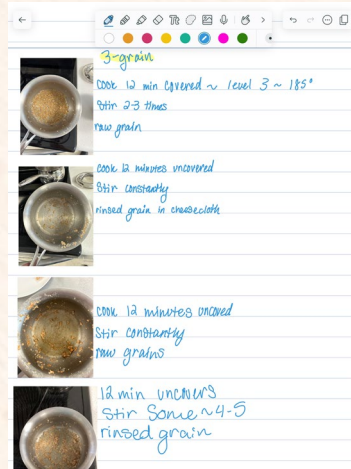 3-grain
Cook 12 min covered ~ level 3 ~ 185°
Stir 2-3 times
raw grain
Cook 12 minutes uncovered
Stir constantly
rinsed grain in cheesecloth
Cook 12 minutes uncoved
Stir constantly
raw grains
12 min uncovers
Stir Some ~4-5
rinsed grain